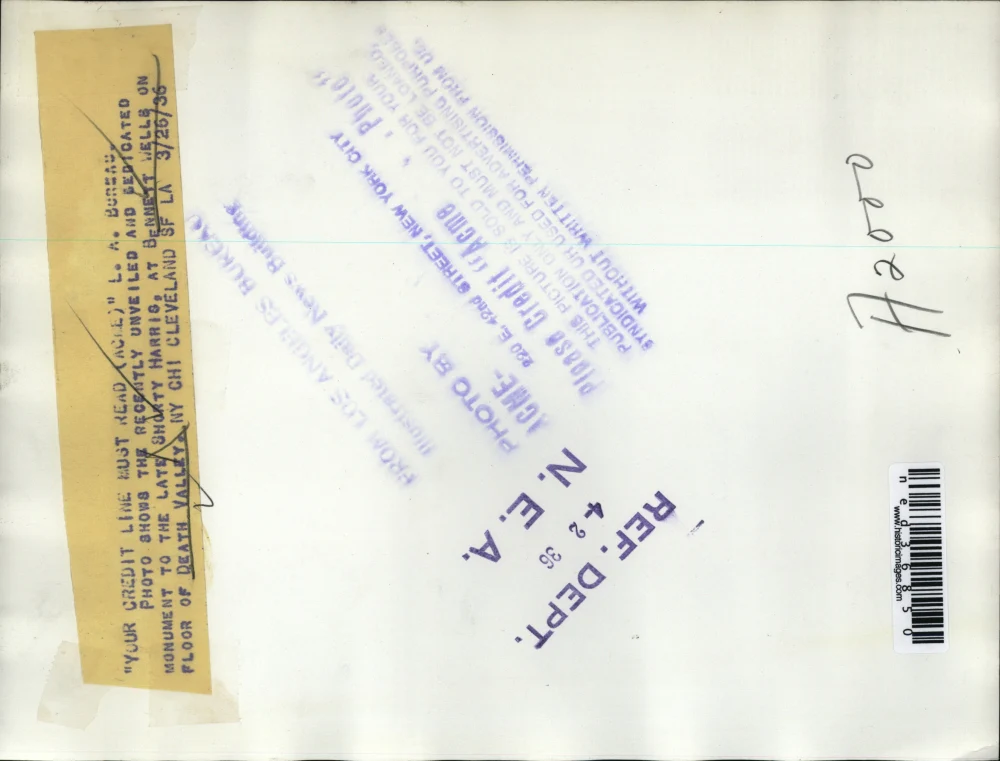 "YOUR CREDIT LINE MUST READ (ACME)" L. A. BUREAU.
PHOTO SHOWS THE RECENTLY UNVEILED AND DEDICATED
MONUMENT TO THE LATE SHORTY HARRIS, AT BENNETT WELLS ON
FLOOR OF DEATH VALLEY. NY CHI CLEVELAND SF LA 3/26/36
FROM LOS ANGELES BUREAU
Illustrated Daily News Building
PHOTO BY
ACME-
220 E. 42nd STREET, NEW YORK CITY
Please Credit "Acme Photo"
THIS PICTURE IS SOLD TO YOU FOR YOUR
PUBLICATION ONLY AND MUST NOT BE LOANED,
SYNDICATED OR USED FOR ADVERTISING PURPOSES
WITHOUT WRITTEN PERMISSION FROM US.
REF. DEPT.
4 2 36
N. E. A.
www.historicimages.com
ned36850